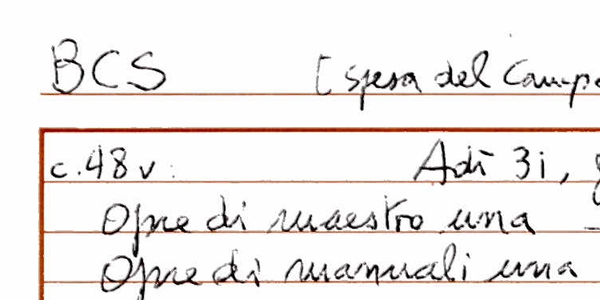 BCS [Spesa del Camp
c.48v: Adì 3i,
Opre di maestro una
Opre di manuali una